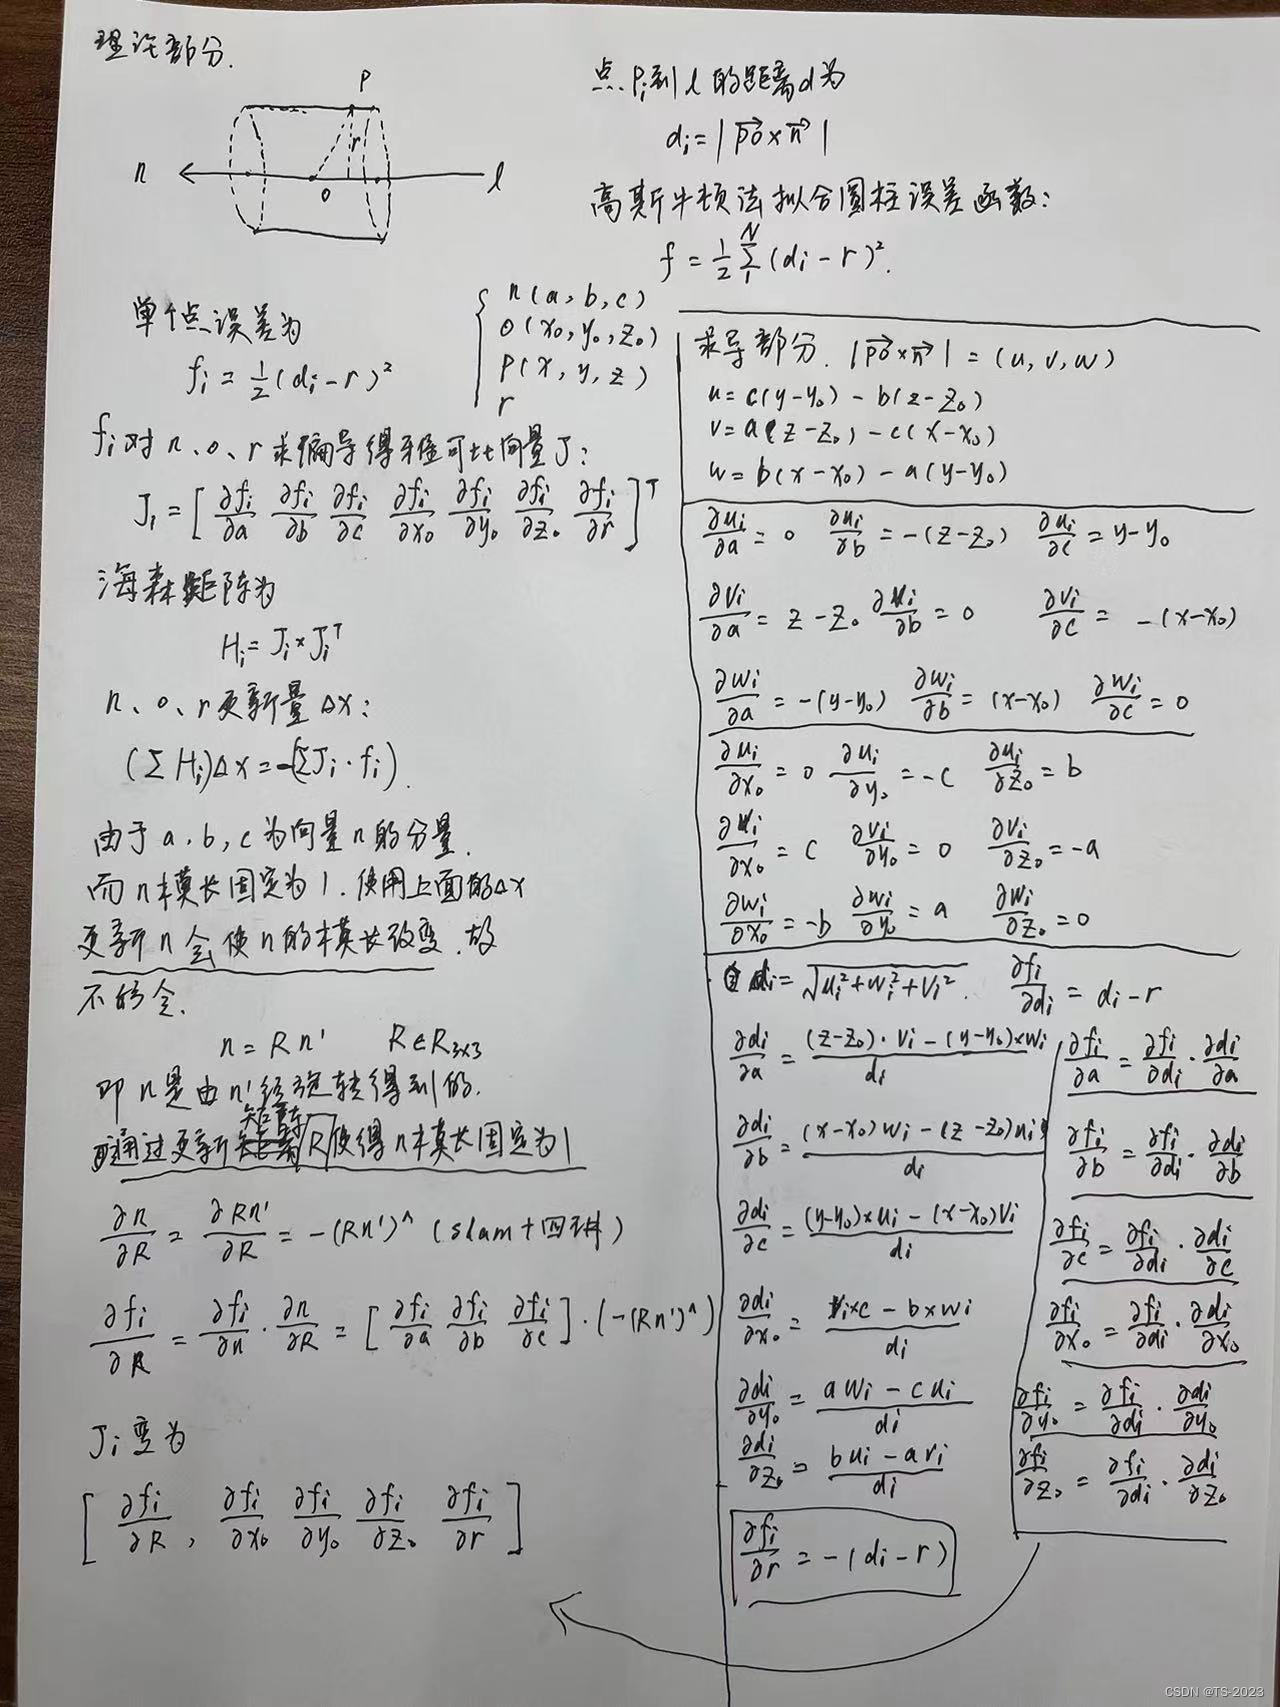 理论部分.
P
r
n
o
l
点Pi到l的距离d为
di = |\vec{po} × \vec{n}|
高斯牛顿法拟合圆柱误差函数:
f = \frac{1}{2} \sum_{1}^{N} (di - r)².
单个点误差为
fi = \frac{1}{2} (di - r)²
n(a, b, c)
o(x₀, y₀, z₀)
p(x, y, z)
r
fi对n、o、r求偏导得雅可比向量J:
J₁ = [∂fi/∂a ∂fi/∂b ∂fi/∂c ∂fi/∂x₀ ∂fi/∂y₀ ∂fi/∂z₀ ∂fi/∂r]ᵀ
海森矩阵为
Hi = Ji × Jiᵀ
n、o、r更新量Δx:
(Σ Hi)Δx = -(ΣJi · fi).
由于a, b, c为向量n的分量.
而n模长固定为1. 使用上面的Δx
更新n会使n的模长改变. 故
不符合.
n = Rn' R∈R₃ₓ₃
即n是由n'经旋转得到的.
通过更新矩阵R使得n模长固定为1
∂n/∂R = ∂Rn'/∂R = -(Rn')^ (slam十四讲)
∂fi/∂R = ∂fi/∂n · ∂n/∂R = [∂fi/∂a ∂fi/∂b ∂fi/∂c] · (-(Rn')^)
Ji变为
[∂fi/∂R, ∂fi/∂x₀ ∂fi/∂y₀ ∂fi/∂z₀ ∂fi/∂r]
求导部分. |\vec{po} × \vec{n}| = (u, v, w)
u = c(y-y₀) - b(z-z₀)
v = a(z-z₀) - c(x-x₀)
w = b(x-x₀) - a(y-y₀)
∂ui/∂a = 0 ∂ui/∂b = -(z-z₀) ∂ui/∂c = y-y₀
∂vi/∂a = z-z₀ ∂vi/∂b = 0 ∂vi/∂c = -(x-x₀)
∂wi/∂a = -(y-y₀) ∂wi/∂b = (x-x₀) ∂wi/∂c = 0
∂ui/∂x₀ = 0 ∂ui/∂y₀ = -c ∂ui/∂z₀ = b
∂vi/∂x₀ = c ∂vi/∂y₀ = 0 ∂vi/∂z₀ = -a
∂wi/∂x₀ = -b ∂wi/∂y₀ = a ∂wi/∂z₀ = 0
di = √(ui²+wi²+vi²). ∂fi/∂di = di - r
∂di/∂a = ((z-z₀)·vi - (y-y₀)×wi)/di
∂di/∂b = ((x-x₀)wi - (z-z₀)ui)/di
∂di/∂c = ((y-y₀)×ui - (x-x₀)vi)/di
∂di/∂x₀ = (vi×c - b×wi)/di
∂di/∂y₀ = (awi - cui)/di
∂di/∂z₀ = (bui - avi)/di
∂fi/∂r = -(di - r)
∂fi/∂a = ∂fi/∂di · ∂di/∂a
∂fi/∂b = ∂fi/∂di · ∂di/∂b
∂fi/∂c = ∂fi/∂di · ∂di/∂c
∂fi/∂x₀ = ∂fi/∂di · ∂di/∂x₀
∂fi/∂y₀ = ∂fi/∂di · ∂di/∂y₀
∂fi/∂z₀ = ∂fi/∂di · ∂di/∂z₀
CSDN @TS-2023